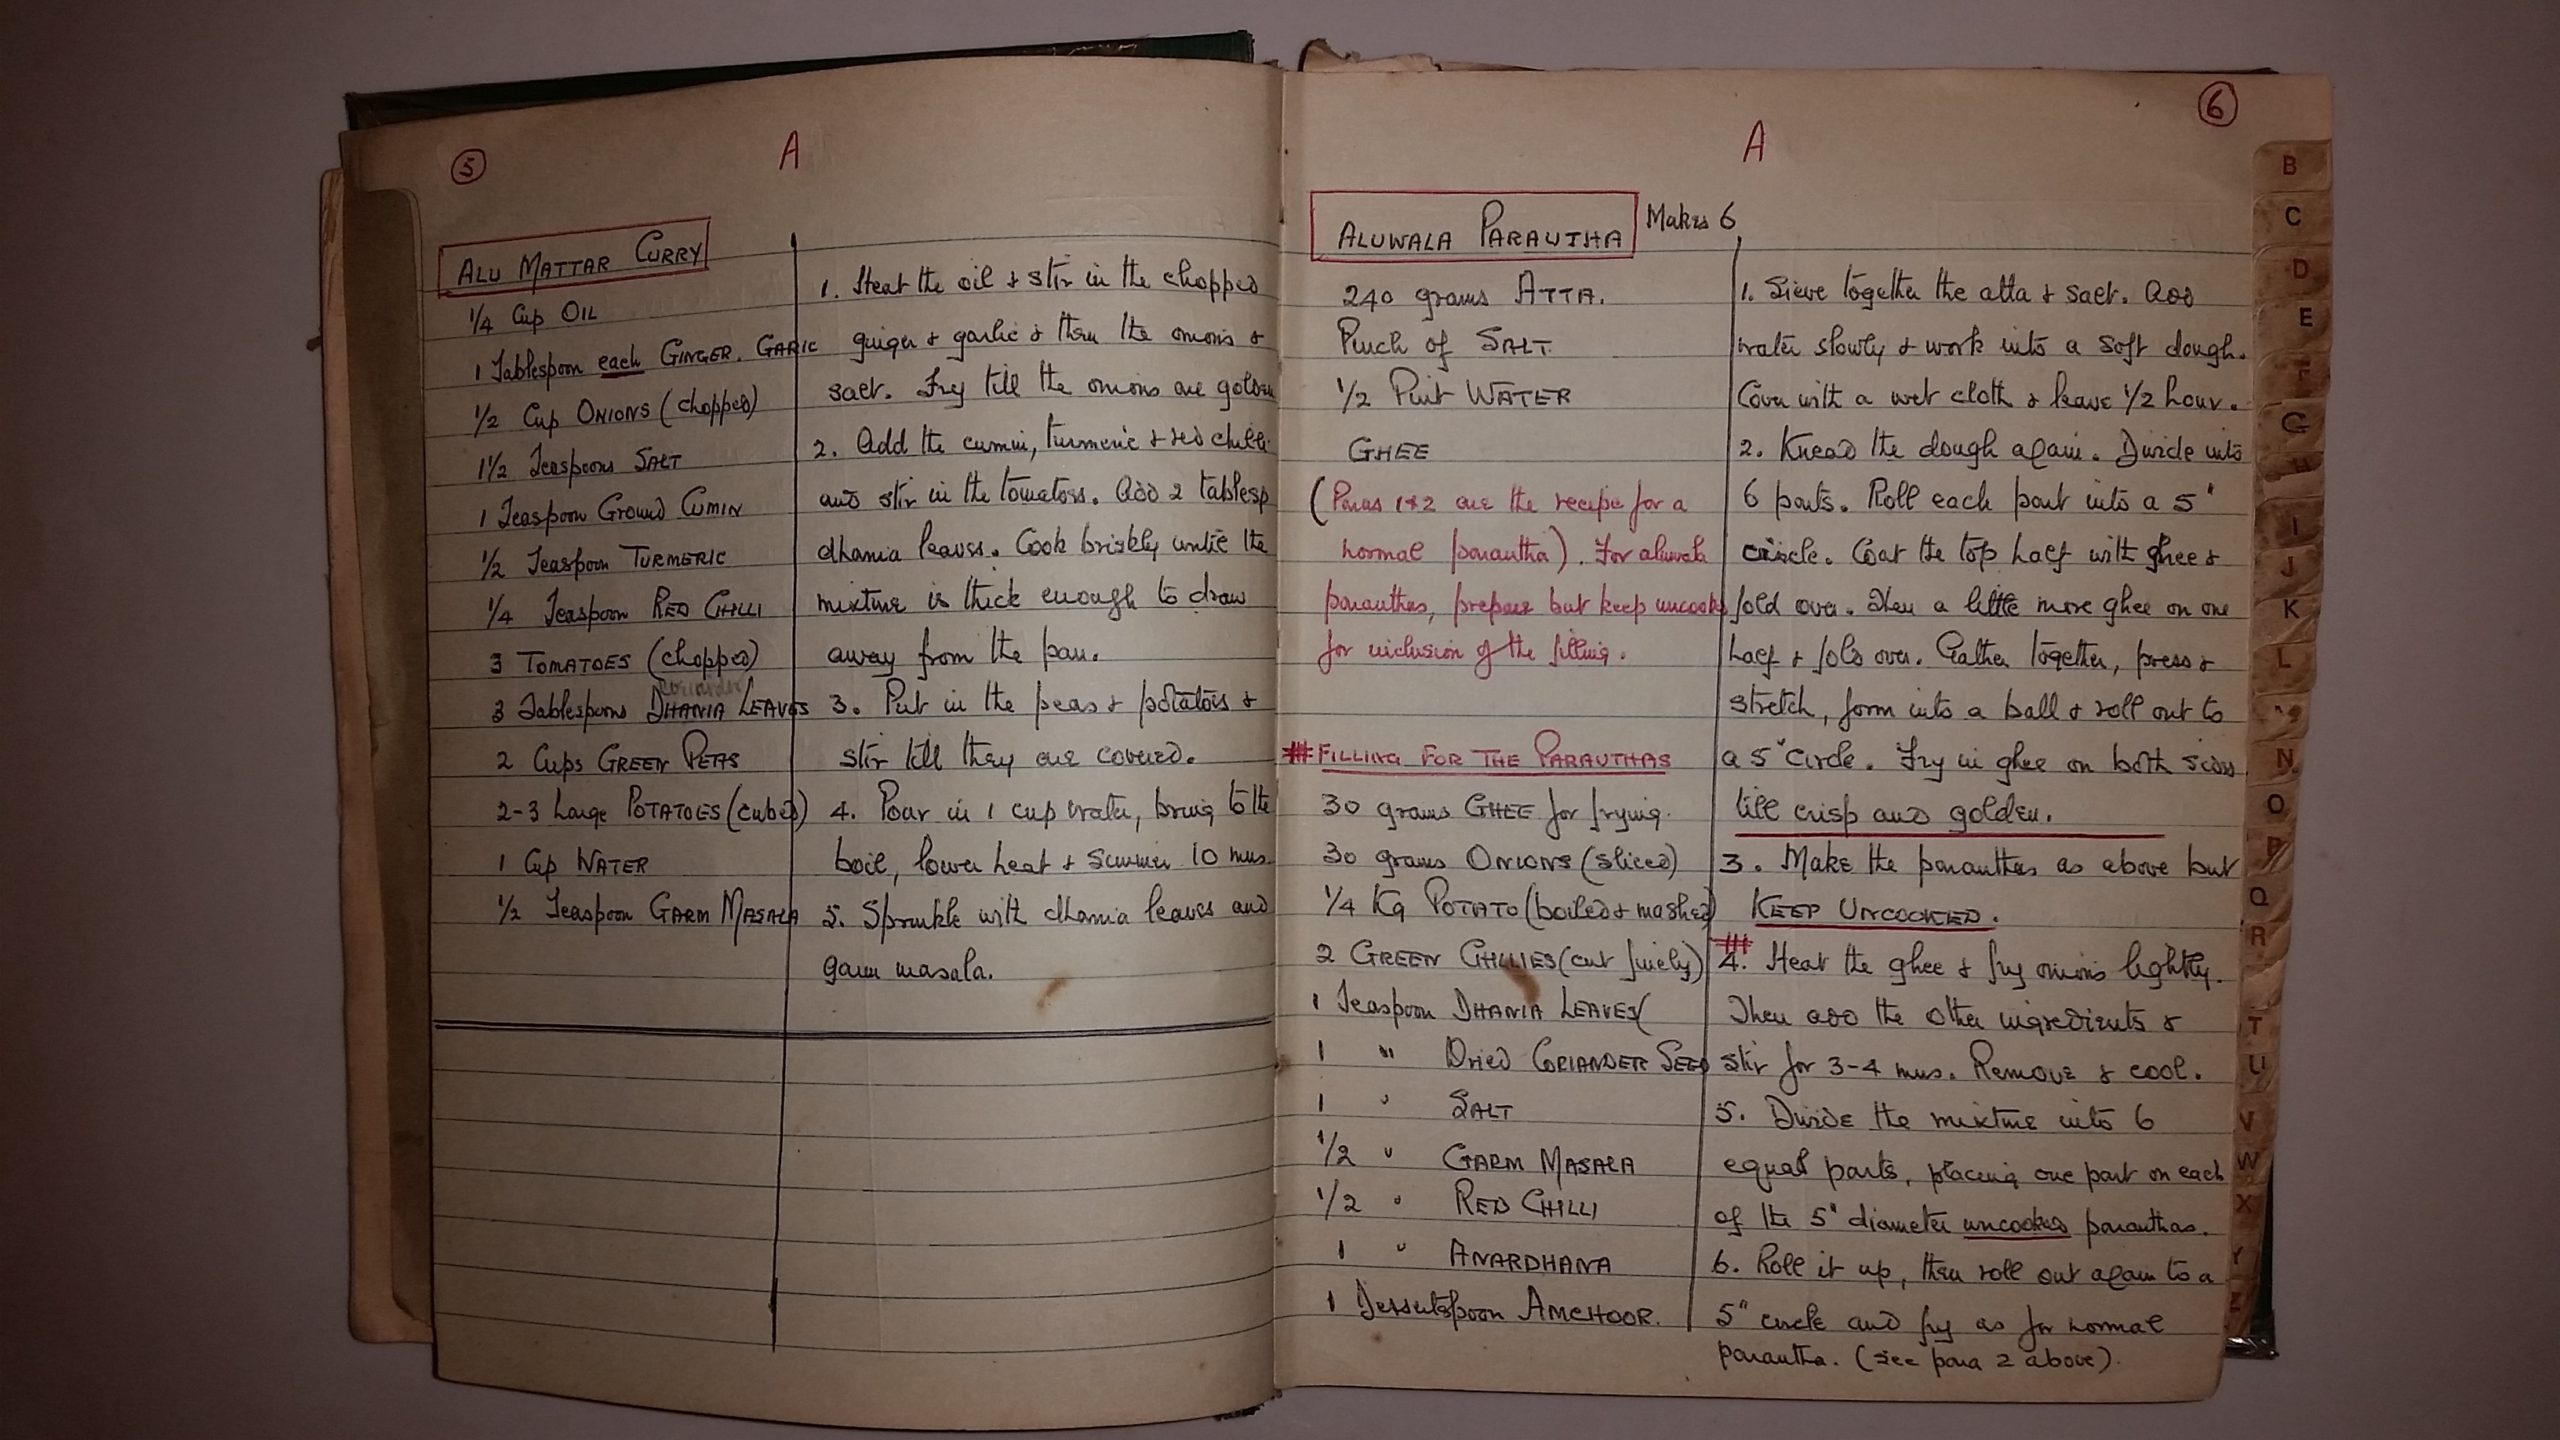 5
A
ALU MATTAR CURRY
1/4 Cup OIL
1 Tablespoon each GINGER. GARIC
1/2 Cup ONIONS (chopped)
1 1/2 Teaspoons SALT
1 Teaspoon Ground CUMIN
1/2 Teaspoon TURMERIC
1/4 Teaspoon RED CHILLI
3 TOMATOES (chopped)
coriander
3 Tablespoons DHANIA LEAVES
2 Cups GREEN PEAS
2-3 Large POTATOES (cubed)
1 Cup WATER
1/2 Teaspoon GARM MASALA
1. Heat the oil & stir in the chopped
ginger & garlic & then the onions &
salt. Fry till the onions are golden
2. Add the cumin, turmeric & red chilli
and stir in the tomatoes. Add 2 tablesp
dhania leaves. Cook briskly until the
mixture is thick enough to draw
away from the pan.
3. Put in the peas & potatoes &
stir till they are covered.
4. Pour in 1 cup water, bring to the
boil, lower heat & simmer 10 mns.
5. Sprinkle with dhania leaves and
garm masala.
6
A
ALUWALA PARAUTHA Makes 6
240 grams ATTA.
Pinch of SALT.
1/2 Pint WATER
GHEE
(Paras 1&2 are the recipe for a
normal parautha). For aluwala
parauthas, prepare but keep uncooked
for inclusion of the filling.
# FILLING FOR THE PARAUTHAS
30 grams GHEE for frying.
30 grams ONIONS (sliced)
1/4 Kg POTATO (boiled & mashed)
2 GREEN CHILLIES (cut finely)
1 Teaspoon DHANIA LEAVES (
1 " DRIED CORIANDER SEED
1 " SALT
1/2 " GARM MASALA
1/2 " RED CHILLI
1 " ANARDHANA
1 Dessertspoon AMCHOOR.
1. Sieve together the atta & salt. Add
water slowly & work into a soft dough.
Cover with a wet cloth & leave 1/2 hour.
2. Knead the dough again. Divide into
6 parts. Roll each part into a 5"
circle. Coat the top half with ghee &
fold over. Then a little more ghee on one
half & fold over. Gather together, press &
stretch, form into a ball & roll out to
a 5" circle. Fry in ghee on both sides
till crisp and golden.
3. Make the parauthas as above but
KEEP UNCOOKED.
#
4. Heat the ghee & fry onions lightly.
Then add the other ingredients &
stir for 3-4 mns. Remove & cool.
5. Divide the mixture into 6
equal parts, placing one part on each
of the 5" diameter uncooked parauthas.
6. Roll it up, then roll out again to a
5" circle and fry as for normal
parautha. (see para 2 above).
B
C
D
E
F
G
H
I
J
K
L
N
O
P
Q
R
T
U
V
W
X
Y
Z